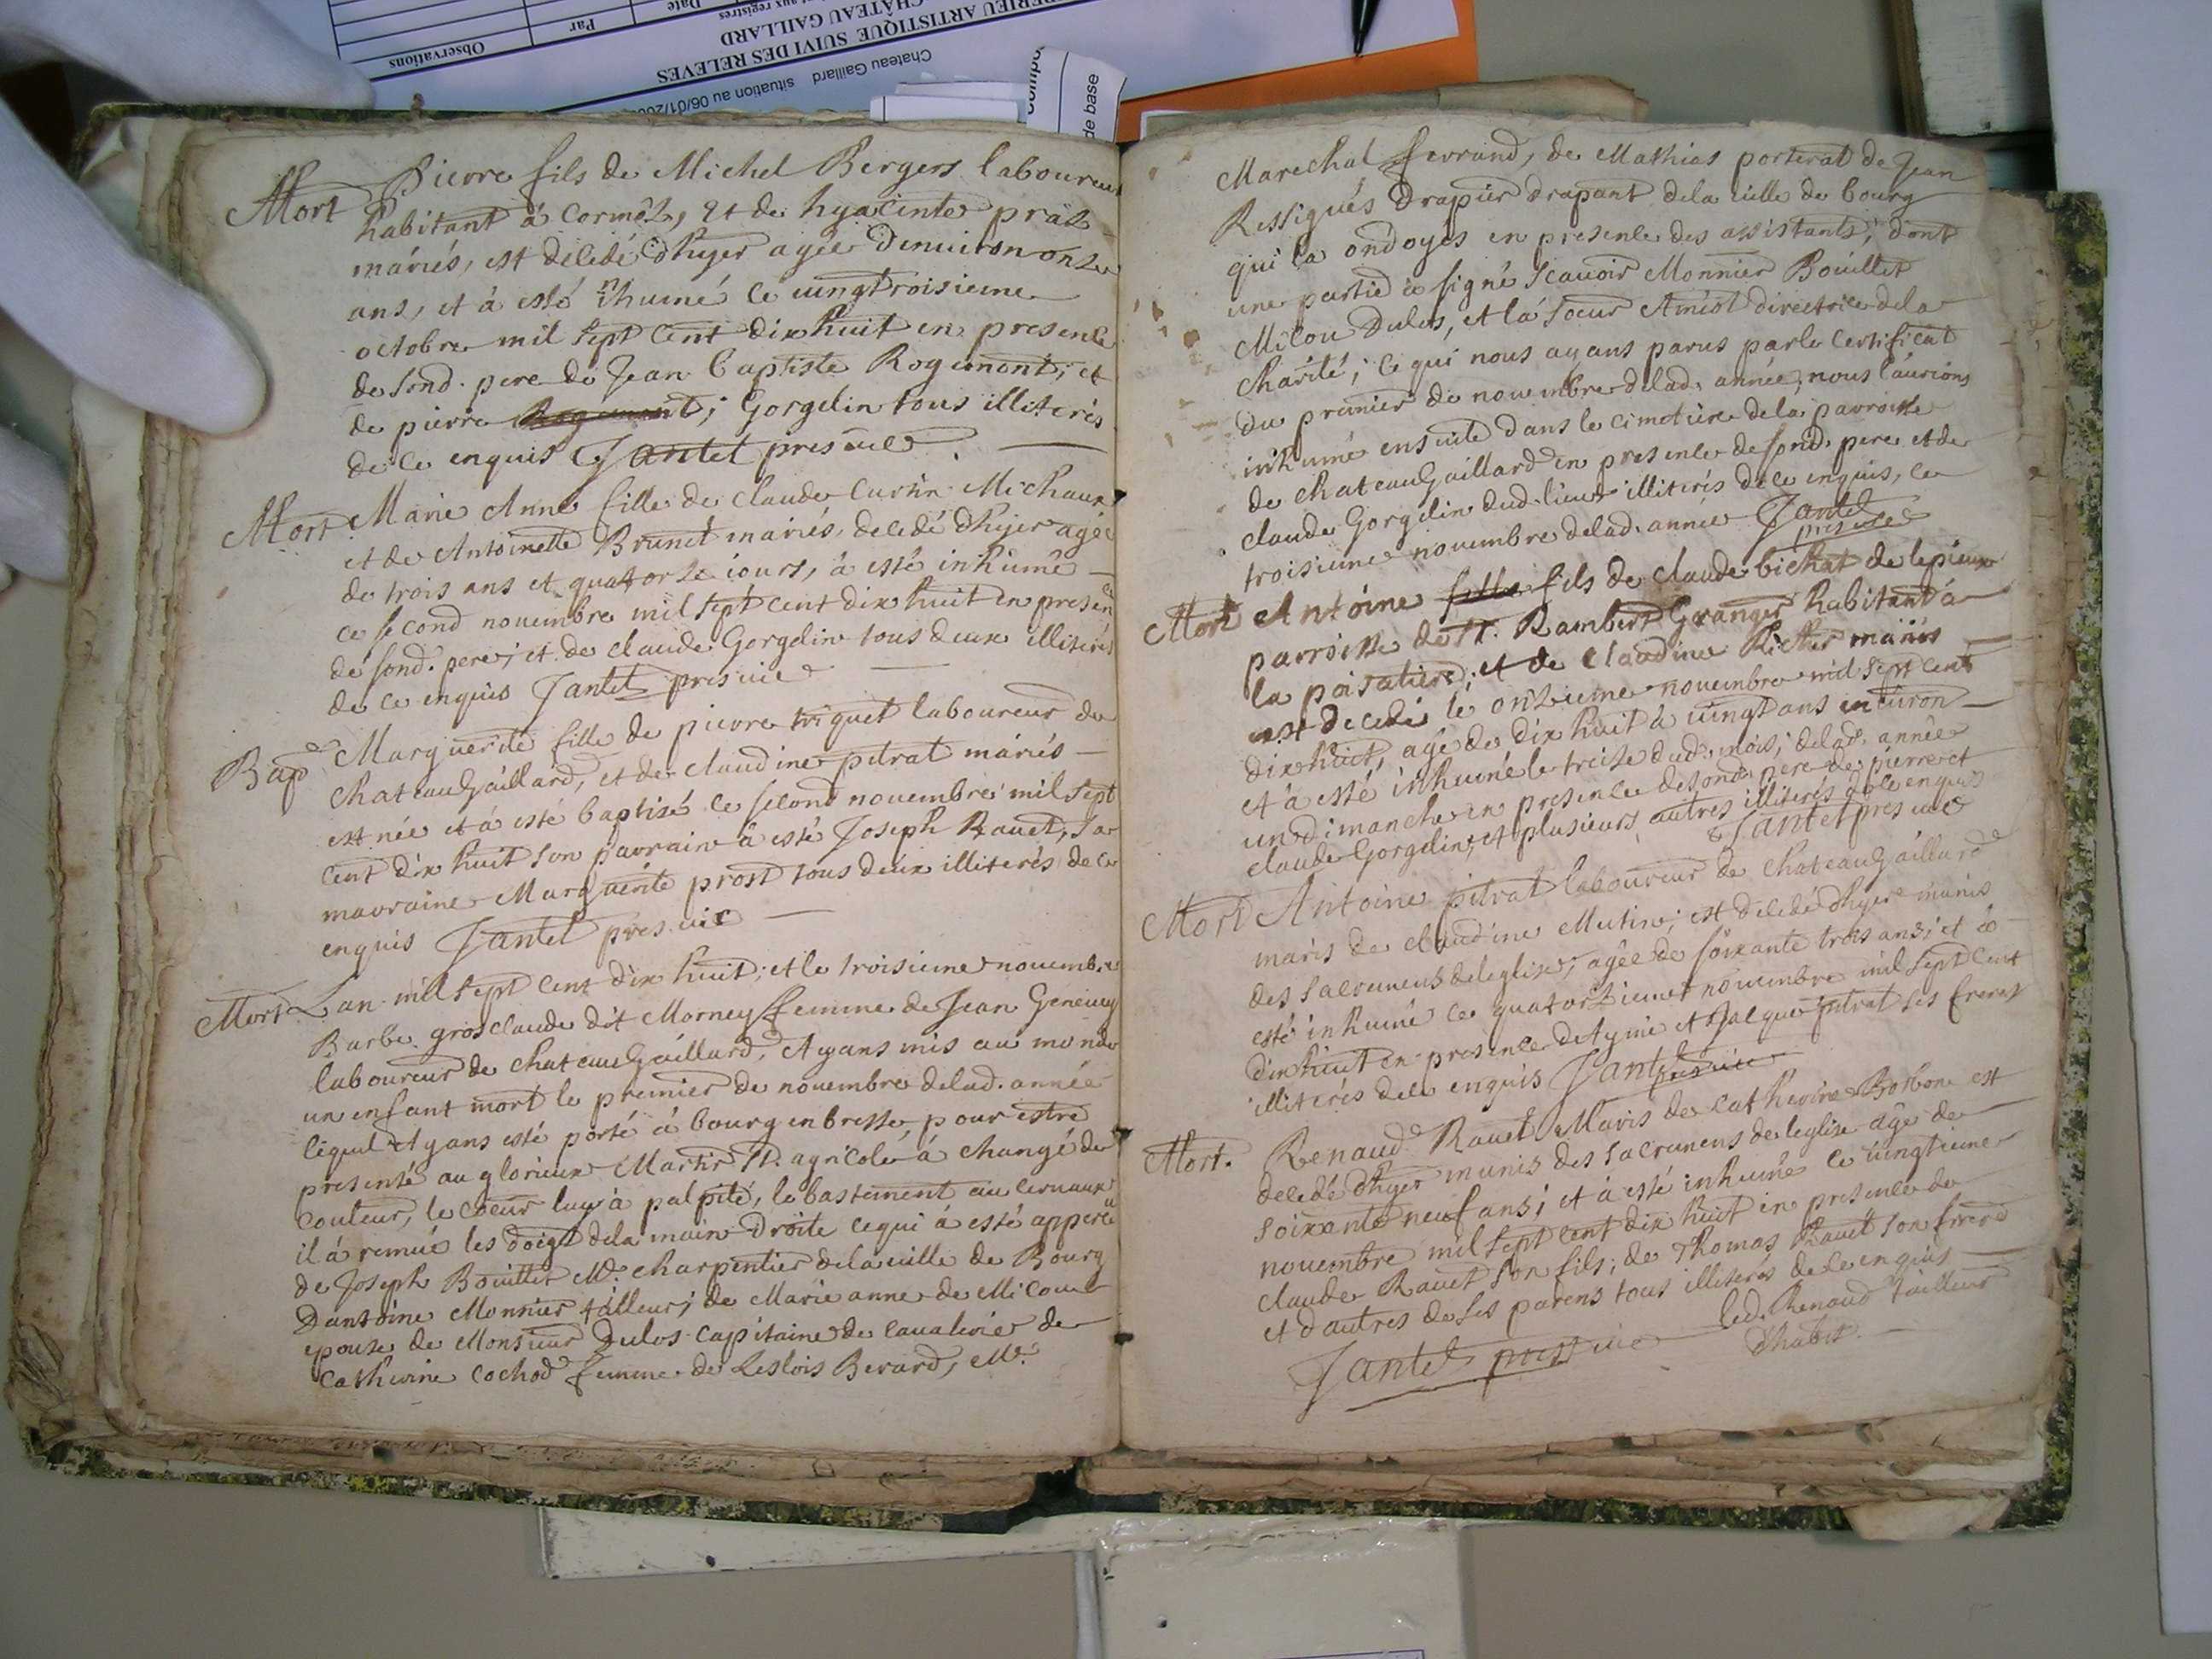 Observations
Par
Date
aux registres
PERIEU ARTISTIQUE SUIVI DES RELEVES
CHÂTEAU GAILLARD
Chateau Gaillard situation au 06/01/20
compo
de base
Mort Pierre fils de Michel Bergers laboureur
habitant à Cormoz, et de hyacinte praz
mariés, est decedé dhyer agée denuiron onze
ans, et à esté inhumé ce uingtroisieme
octobre mil sept cent dix huit en presence
de sond. pere de Jean baptiste Rogemont, et
de pierre Rogemont; Gorgelin tous illiterés
de ce enquis Jantet pres uic
Mort Marie Anne fille de claude curtin Michaux
et de Antoinette Brunet mariés, decedé dhyer agée
de trois ans et quatorze iours, à esté inhumé
ce second nouembre mil sept cent dix huit en presen ce
de sond. pere; et de claude Gorgelin tous deux illiterés
de ce enquis Jantet pres uic
Bap.e Marguerite fille de pierre triquet laboureur de
chateauGaillard, et de claudine pitrat mariés
est née et à esté baptisé ce second nouembre mil sept
cent dix huit son parrain à esté Joseph Rauet, sa
marraine Marguerite prost tous deux illiterés de ce
enquis Jantet pres uic
Mort Lan mil sept cent dix huit; et le troisieme nouembre
Barbe grosclaude dit Morney femme de Jean Geneuay
laboureur de chateauGaillard, Ayans mis au monde
un enfant mort le premier de nouembre delad. année
lequel Ayans esté porté à bourg en bresse, pour estre
presenté au glorieux Martir St. agricole à changé de
couleur, le coeur luy à palpité, le bastement au cerueau
il à remué les doigt dela main droite ce qui à esté apperceu
de Joseph Bouillet Me. charpentier dela uille de Bourg
Dantoine Monnier tailleur; de Marie anne de Micou
epouse de Monsieur Dulos capitaine de caualerie de
Catherine cochod femme de Leslois Berard, Me.
Marechal ferrand, de Mathias porterat de Jean
Ressigués Drapier drapant dela uille de bourg
qui la ondoyés en presence des assistants, dont
une partie à signé scauoir Monnier Bouillet
Micou Dulos, et la soeur Amiot directrice dela
charité; ce qui nous ayans parus par le certificat
du premier de nouembre delad. année, nous l'aurions
inhumé ensuite dans le cimetiere dela parroisse
de chateauGaillard en presence de sond. pere et de
claude Gorgelin dud. lieu illiterés de ce enquis, ce
troisieme nouembre delad. année Jantet
pres uic
Mort Antoine fille fils de claude bichat de lepieux
parroisse de St. Rambert Granger habitant à
la poisatiere; et de claudine Richer mariés
est decedé le onzieme nouembre mil sept cent
dix huit, agé de dix huit à uingt ans enuiron
et à esté inhumé le treize dud. mois, delad. année
un dimanche en presence de sond. pere de pierre et
claude Gorgelin, et plusieurs autres illiterés de ce enquis
Jantet pres uic
Mort Antoine pitrat laboureur de chateauGaillard
maris de claudine Mutin; est decedé dhyer munis
des sacremens de leglise; agée de soixante trois ans; et à
esté inhumé ce quatorzieme nouembre mil sept cent
dix huit en presence de Aymé et Jacque pitrat ses freres
illiterés de ce enquis Jantet pres uic
Mort. Renaud Rauet Maris de catherine Borbon est
decedé dhyer munis des sacremens de leglise agé de
soixante neuf ans; et à esté inhumé ce uingtieme
nouembre mil sept cent dix huit en presence de
claude Rauet son fils; de Thomas Rauet son frere
et dautres de ses parens tous illiterés de ce enquis
led. Renaud tailleur
Jantet pres uic dhabit.